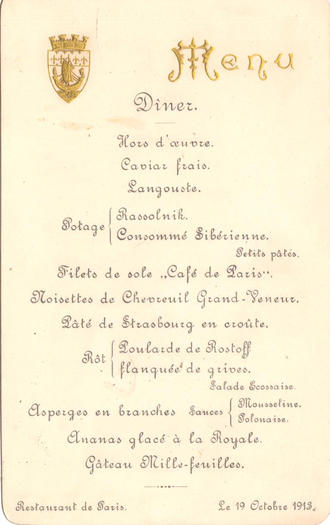 Menu
Dîner.
Hors d'œuvre.
Caviar frais.
Langouste.
Potage { Rassolnik.
Consommé Sibérienne.
Petits pâtés.
Filets de sole „Café de Paris".
Noisettes de Chevreuil Grand-Veneur.
Pâté de Strasbourg en croûte.
Rôt { Poularde de Rostoff
flanquée de grives.
Salade Ecossaise.
Asperges en branches Sauces { Mousseline.
Polonaise.
Ananas glacé à la Royale.
Gâteau Mille-feuilles.
Restaurant de Paris. Le 19 Octobre 1913.